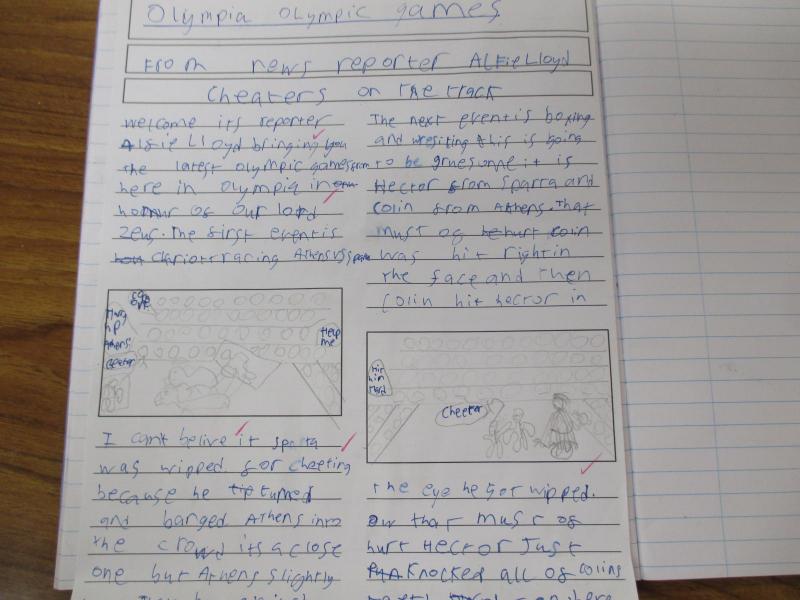 Olympia Olympic games
From news reporter Alfie Lloyd
Cheaters on the track
welcome its reporter
Alfie Lloyd bringing you
the latest olympic games from
here in olympia in
honour of our lord
Zeus. The first event is
chariot racing Athens vs
I can't belive it sparta
was wipped for cheeting
because he turned
and banged Athens into
the crowd its a close
one but Athens slightly
The next event is boxing
and this is going
to be gruesome it is
Hector from sparta and
Colin from Athens. That
must of hurt colin
was hit right in
the face and then
Colin hit hector in
Help
me
hit
him
Hard
Cheeter
the eye he got wipped.
ow that must of
hurt Hector Just
knocked all of colins